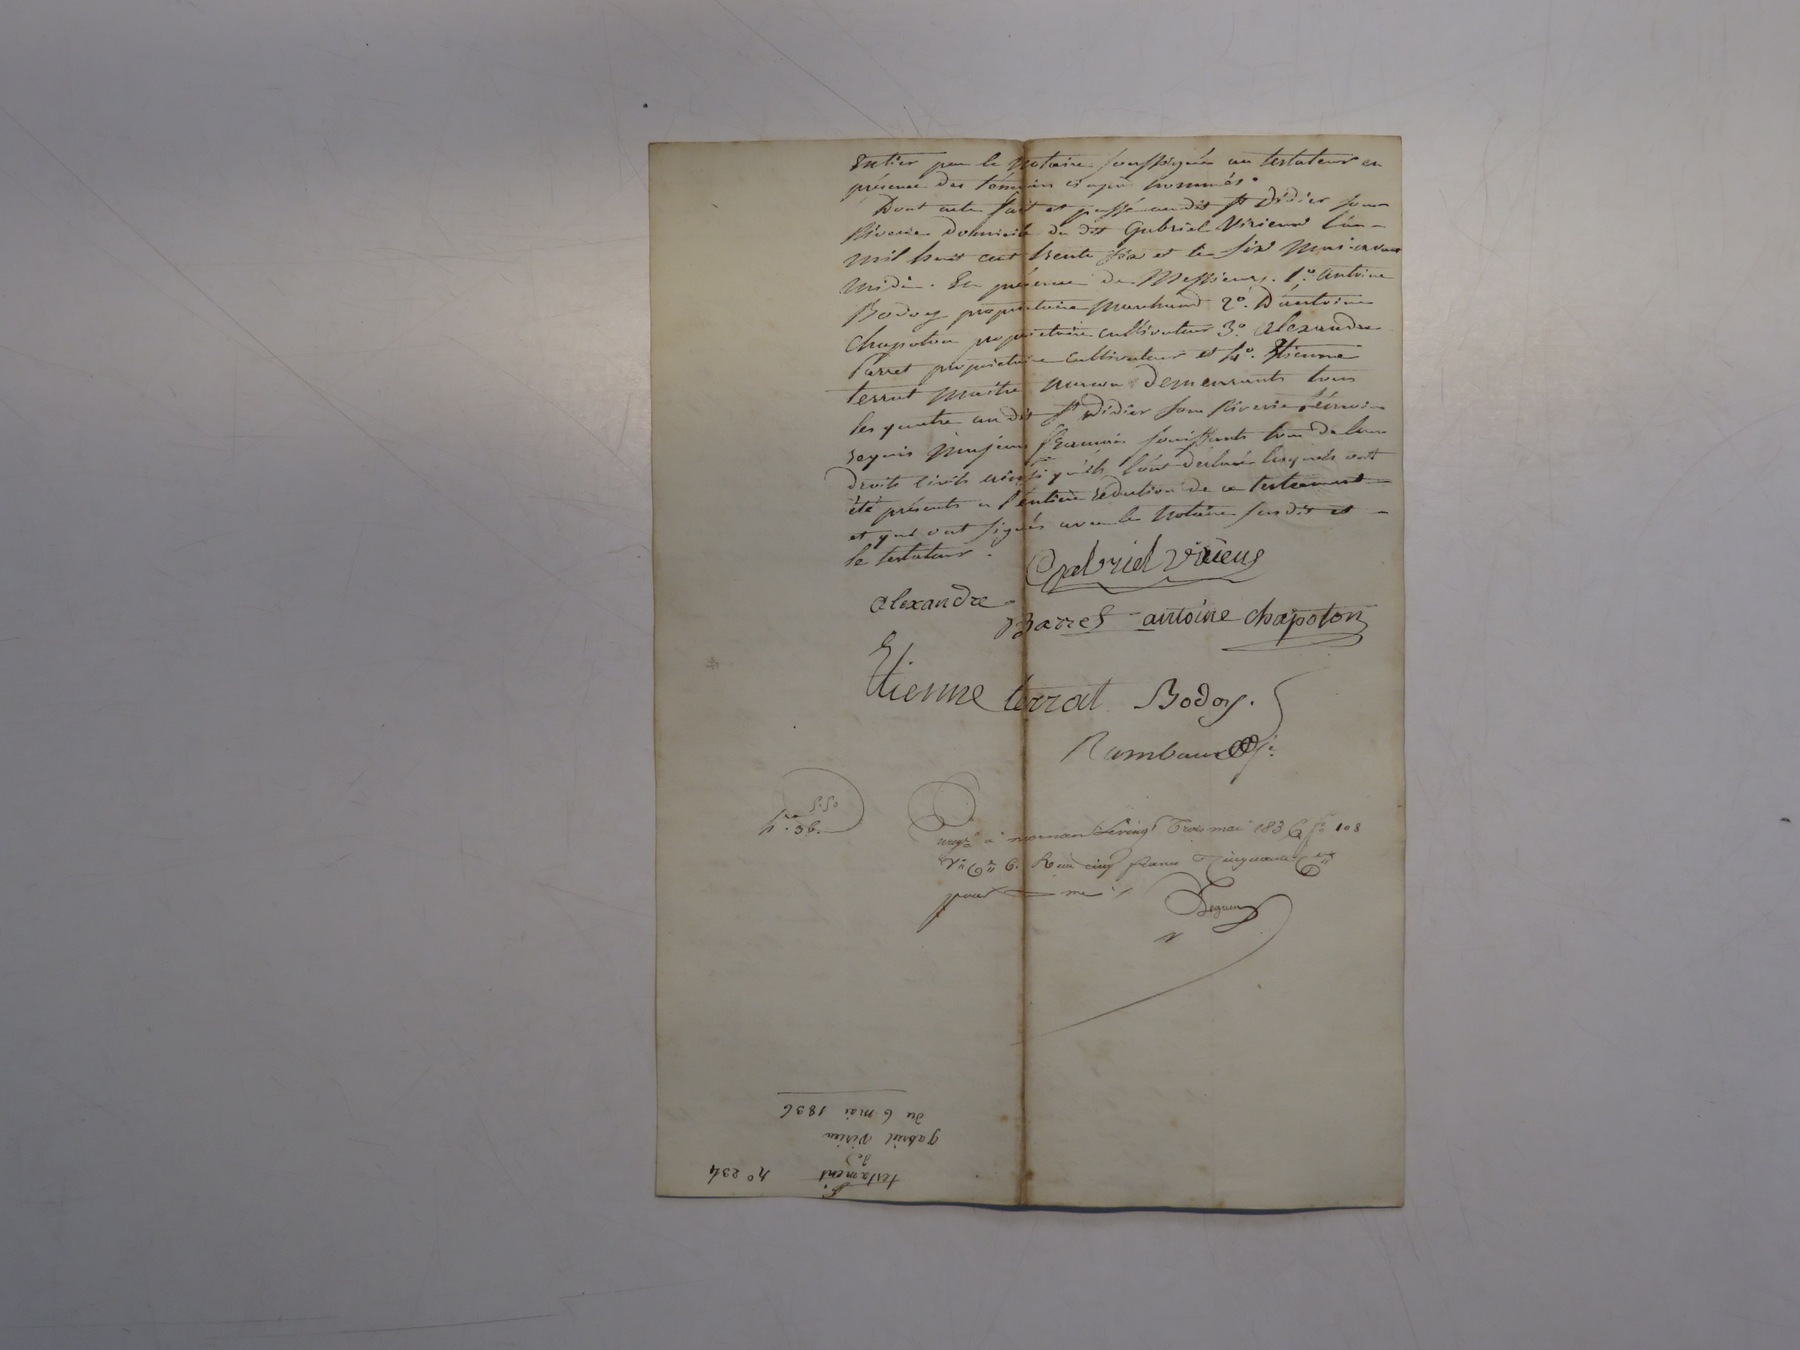 Entier par le Notaire soussigné au testateur en
présence des témoins ci après nommés.
Dont acte fait et passé audit St Didier sous
Riverie Domicile du dit Gabriel Virieux l'an
mil huit cent trente six et le six Mai avant
Midi. En présence de Messieurs. 1.° Antoine
Bodoy propriétaire Marchand 2°. D'antoine
Chapoton propriétaire cultivateur 3.° Alexandre
Barret propriétaire Cultivateur et 4°. Etienne
terrat Maitre Maçon demeurants tous
les quatre au dit St Didier sous Riverie, témoins
requis Majeurs Jouissants tous de leurs
droits Civils ainsi qu'ils l'ont déclaré lesquels ont
été présents a l'entière rédaction de ce testament
et qui ont signés avec le Notaire susdit et
le testateur.
Gabriel Virieux
alexandre
Barret antoine chapoton
Etienne terrat Bodoy.
Rambaud
5.50
36.
à mornant Levingt Trois mai 1836 f° 108
6. Reçu cinq francs cinquante
pour me
n° 234
testament
de
gabriel Virieu
du 6 mai 1836